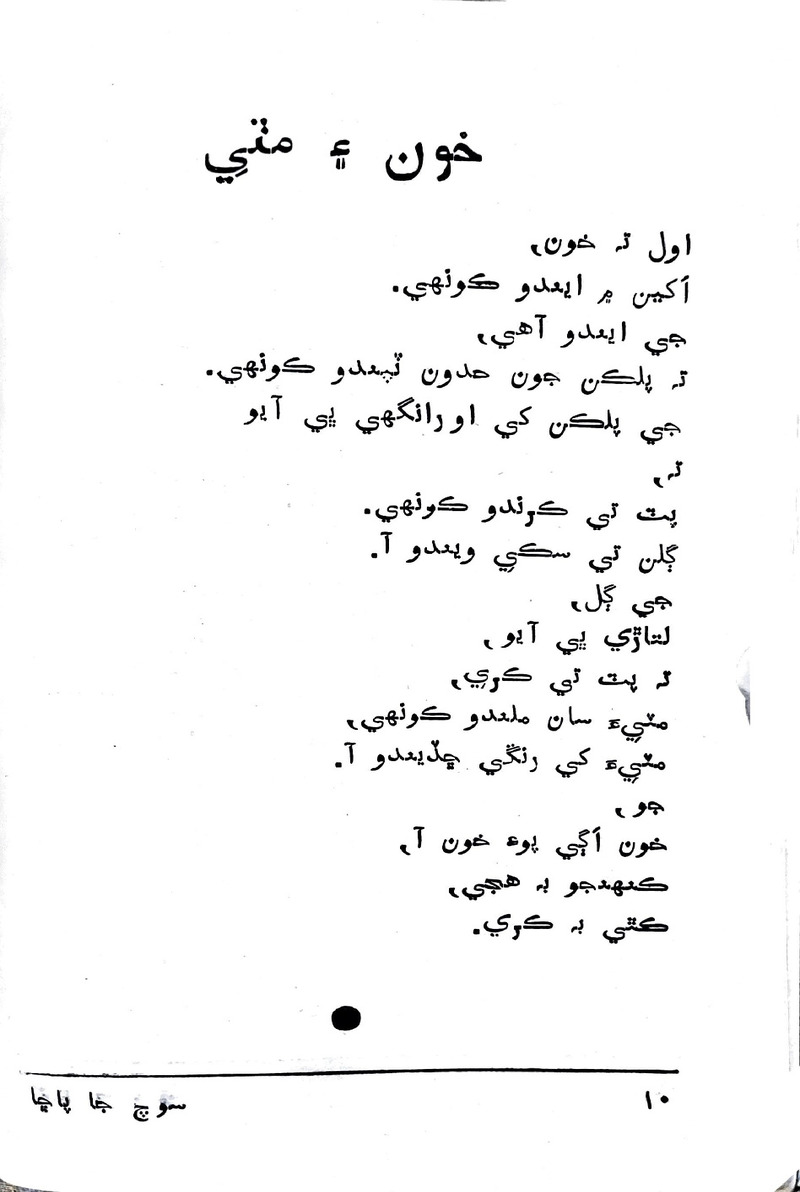 خون ۽ مٽيِ
اول تہ خون،
اَکين ۾ ايندو ڪونهي.
جي ايندو آهي،
تہ پلڪن جون حدون ٽپندو ڪونهي.
جي پلڪن کي اورانگهي ڀي آيو
تہ،
پٽ تي ڪرندو ڪونهي.
ڳلن تي سڪيِ ويندو آ.
جي ڳل،
لتاڙي ڀي آيو،
تہ پٽ تي ڪريِ،
مٽيِءَ سان ملندو ڪونهي،
مٽيِءَ کي رنڱي ڇڏيندو آ.
جو،
خون اَڳي پوءِ خون آ،
ڪنهنجو بہ هجي،
ڪٿي بہ ڪري.
١٠
سوچ جا پاڇا